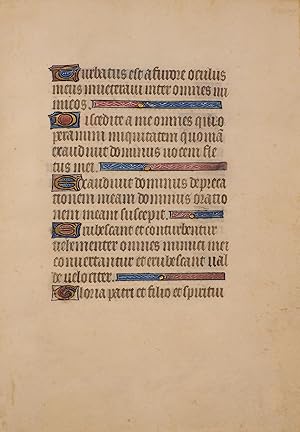 Turbatus est a furore oculus
meus inveteravi inter omnes ini
micos.
Discedite a me omnes qui o
peramini iniquitatem quoniā
exaudivit dominus vocem fle
tus mei.
Exaudivit dominus depreca
tionem meam dominus oratio
nem meam suscepit.
Erubescant et conturbentur
vehementer omnes inimici mei
convertantur et erubescant val
de velociter.
Gloria patri et filio et spiritui